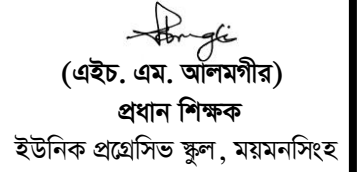 (এইচ. এম. আলমগীর)
প্রধান শিক্ষক
ইউনিক প্রগ্রেসিভ স্কুল, ময়মনসিংহ